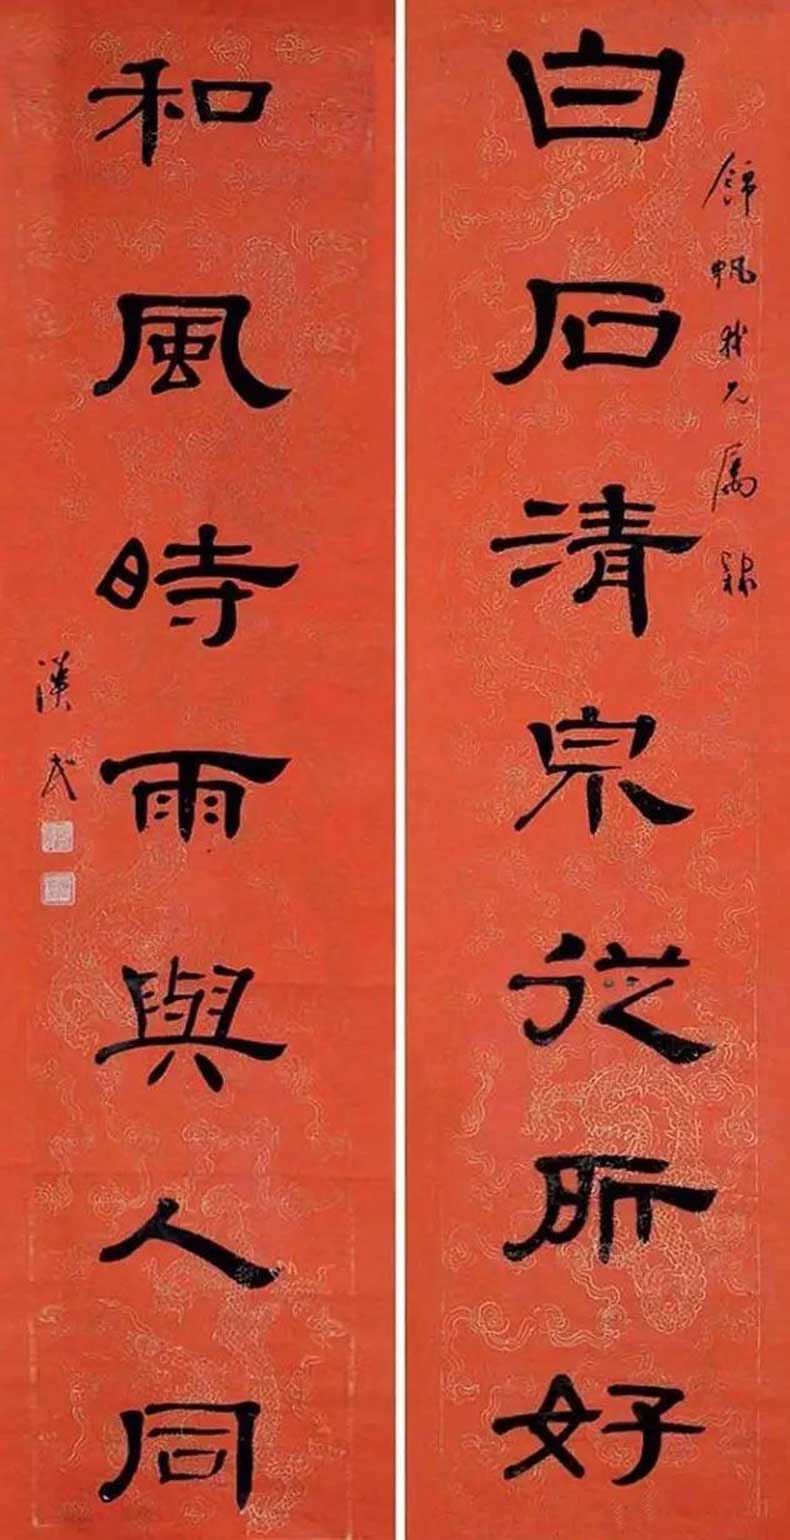 錦帆我兄屬隸
白石清泉從所好
和風時雨與人同
漢民